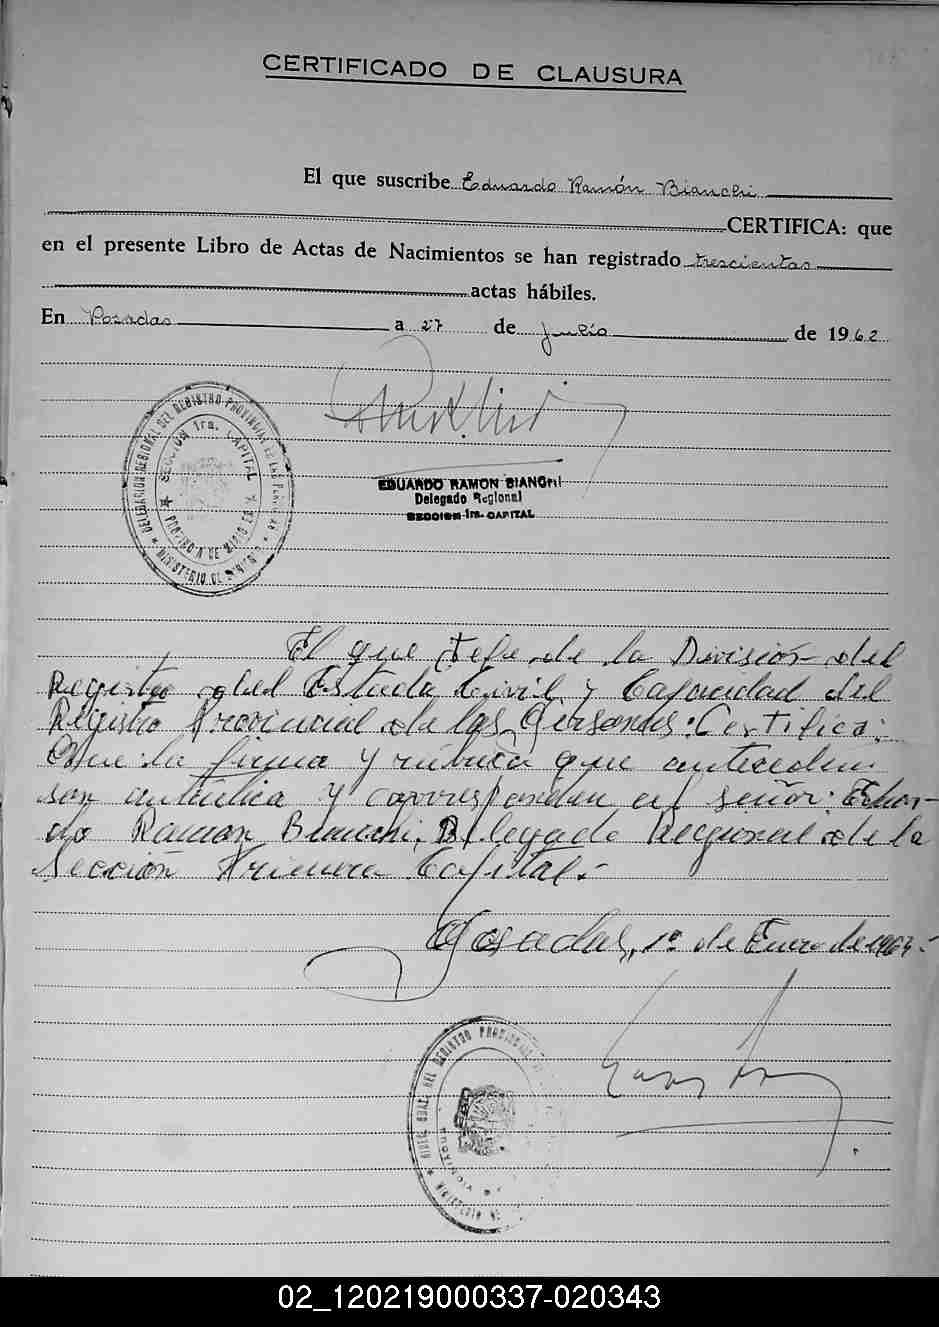 CERTIFICADO DE CLAUSURA
El que suscribe Eduardo Ramón Bianchi
CERTIFICA: que
en el presente Libro de Actas de Nacimientos se han registrado trescientas
actas hábiles.
En Posadas a 27 de Julio de 1962
DELEGACION REGIONAL DEL REGISTRO PROVINCIAL DE LAS PERSONAS
SECCION 1ra. CAPITAL
EDUARDO RAMON BIANCHI
Delegado Regional
SECCION 1ra. CAPITAL
El que Jefe de la División del
Registro del Estado Civil y Capacidad del
Registro Provincial de las Personas: Certifica:
Que la firma y rúbrica que anteceden
son auténtica y corresponden al señor: Eduar-
do Ramon Bianchi, Delegado Regional de la
Sección Primera Capital.-
Posadas, 1º de Enero de 1963.-
DEL REGISTRO PROVINCIAL
02_120219000337-020343